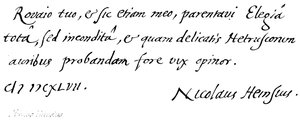 Rovaio tuo, & sic etiam meo, parentavi Elegiâ
totâ, sed inconditâ, & quam delicatis Hetruscorum
auribus probandam fore vix opinor.
MDCXLVII.
Nicolaus Heinsius.